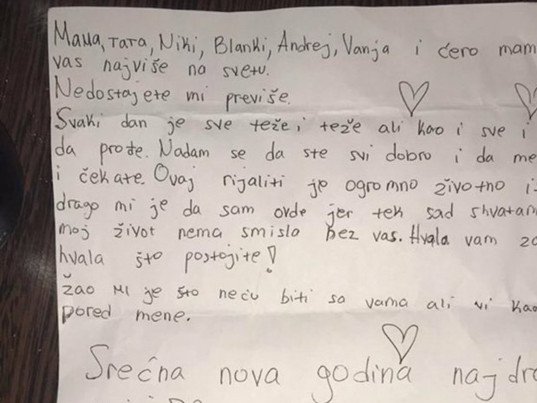 Мама, тата, Niki, Blanki, Andrej, Vanja i ćero mam
vas najviše na svetu.
Nedostajete mi previše.
Svaki dan je sve teže i teže ali kao i sve i
da prođe. Nadam se da ste svi dobro i da me
i čekate. Ovaj rijaliti je ogromno životno i
drago mi je da sam ovde jer tek sad shvatam
moj život nema smisla bez vas. Hvala vam za
hvala što postojite!
Žao mi je što neću biti sa vama ali vi kao
pored mene.
Srećna nova godina najdra